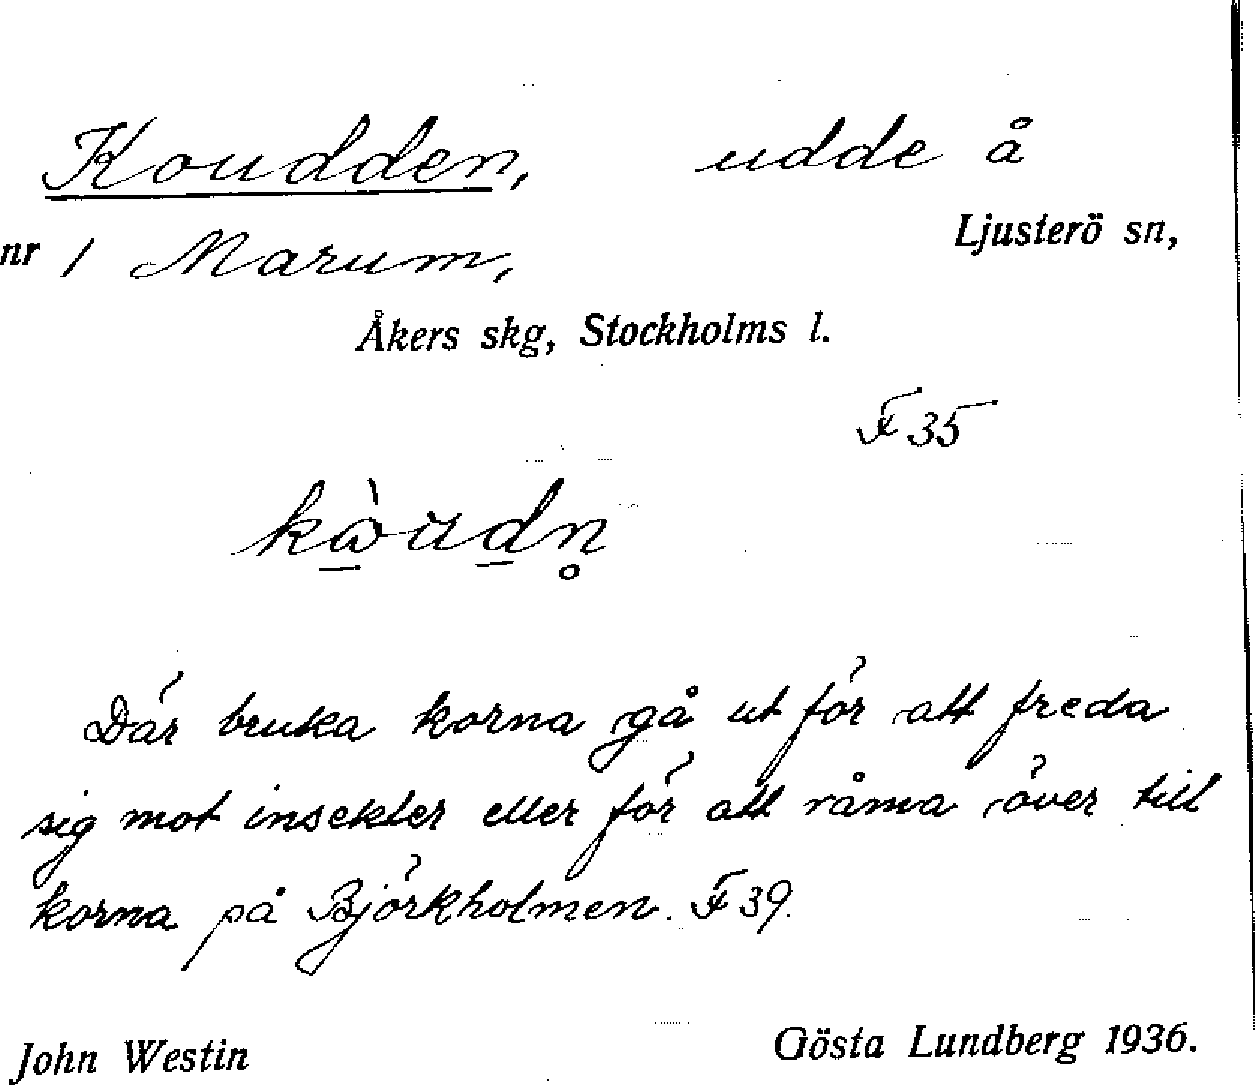 Koudden, udde å
Ljusterö sn,
nr 1 Marum,
Åkers skg, Stockholms l.
F 35
Där bruka korna gå ut för att freda
sig mot insekter eller för att råma över till
korna på Björkholmen. F 39.
John Westin Gösta Lundberg 1936.